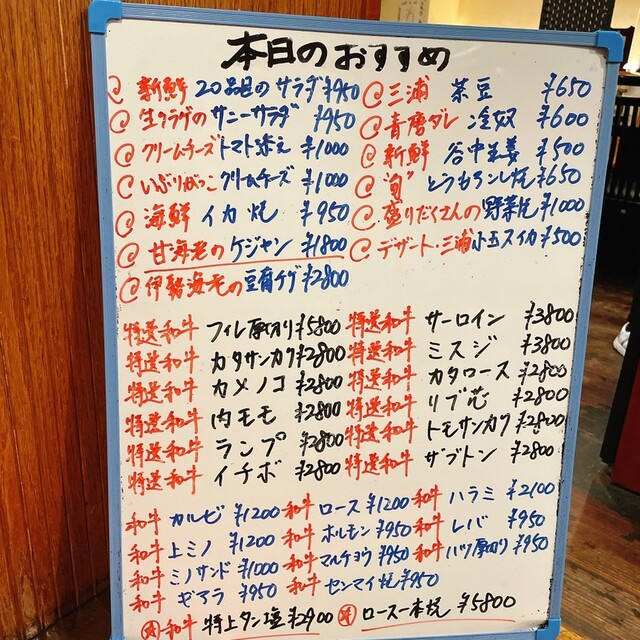 本日のおすすめ
@新鮮 20品目のサラダ ¥950
@生クラゲのサニーサラダ ¥950
@クリームチーズトマト添え ¥1000
@いぶりがっこクリームチーズ ¥1000
@海鮮 イカ焼 ¥950
@甘海老のケジャン ¥1800
@伊勢海老の豆腐チゲ ¥2800
@三浦 茶豆 ¥650
@青唐ダレ 冷奴 ¥600
@新鮮 谷中生姜 ¥500
@旬 とうもろこし焼 ¥650
@盛りだくさんの野菜焼 ¥1000
@デザート・三浦小玉スイカ ¥500
特選和牛 フィレ厚切り ¥5800
特選和牛 カタサンカク ¥2800
特選和牛 カメノコ ¥2800
特選和牛 内モモ ¥2800
特選和牛 ランプ ¥2800
特選和牛 イチボ ¥2800
特選和牛 サーロイン ¥3800
特選和牛 ミスジ ¥3800
特選和牛 カタロース ¥2800
特選和牛 リブ芯 ¥2800
特選和牛 トモサンカク ¥2800
特選和牛 ザブトン ¥2800
和牛 カルビ ¥1200 和牛 ロース ¥1200 和牛 ハラミ ¥2100
和牛 上ミノ ¥1200 和牛 ホルモン ¥950 和牛 レバ ¥950
和牛 ミノサンド ¥1000 和牛 マルチョウ ¥950 和牛 ハツ厚切り ¥950
和牛 ギアラ ¥950 和牛 センマイ焼 ¥950
和牛 特上タン塩 ¥2900 ロース一本焼 ¥5800